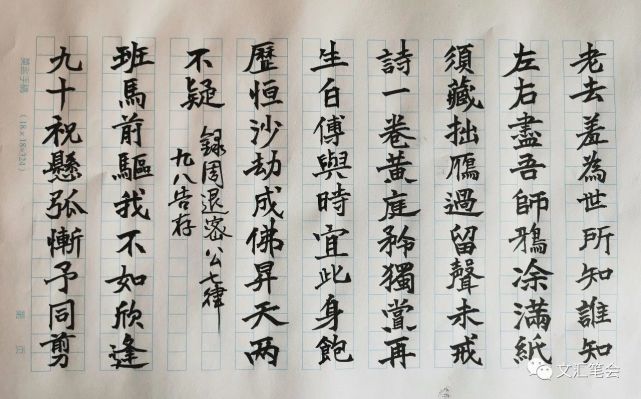 老去羞為世所知誰知
左右盡吾師鴉涂滿紙
須藏拙鴈過留聲未戒
詩一卷黃庭矜獨賞再
生白傅與時宜此身飽
歷恒沙劫成佛昇天兩
不疑
錄周退密公七律
九八告存
班馬前驅我不如欣逢
九十祝懸弧慚予同剪
(18×18=324)
第 页
文汇笔会